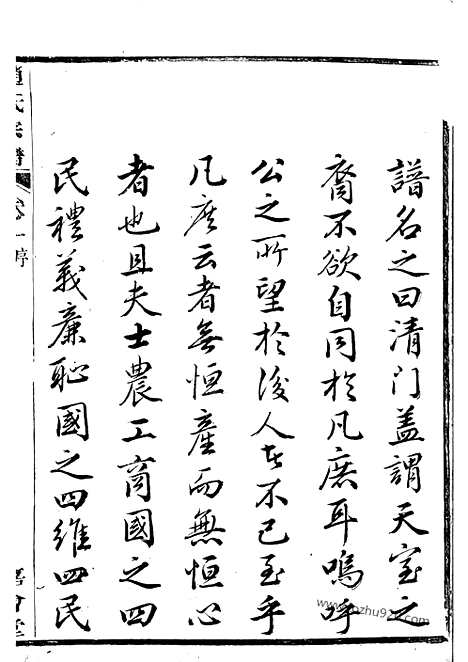 譜名之曰清門盖謂天室之
裔不欲自同於凡庶耳嗚呼
公之所望於後人者不已至乎
凡庶云者無恒產而無恒心
者也且夫士農工商國之四
民禮義廉恥國之四維四民
趙氏宗譜 卷一序